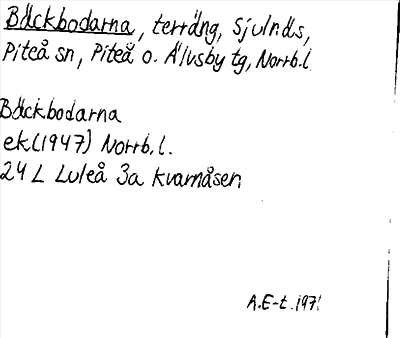 Bäckbodarna, terräng, Sjulnäs,
Piteå sn, Piteå o. Älvsby tg, Norrb.l.
Bäckbodarna
ek(1947) Norrb.l.
24 L Luleå 3a Kvarnåsen
A.E-t. 1971